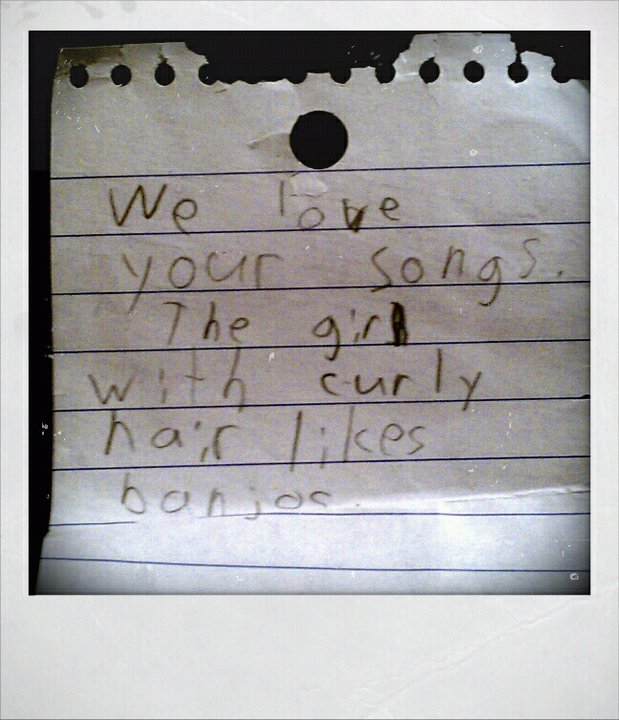 We love
your songs.
The girl
with curly
hair likes
banjos.